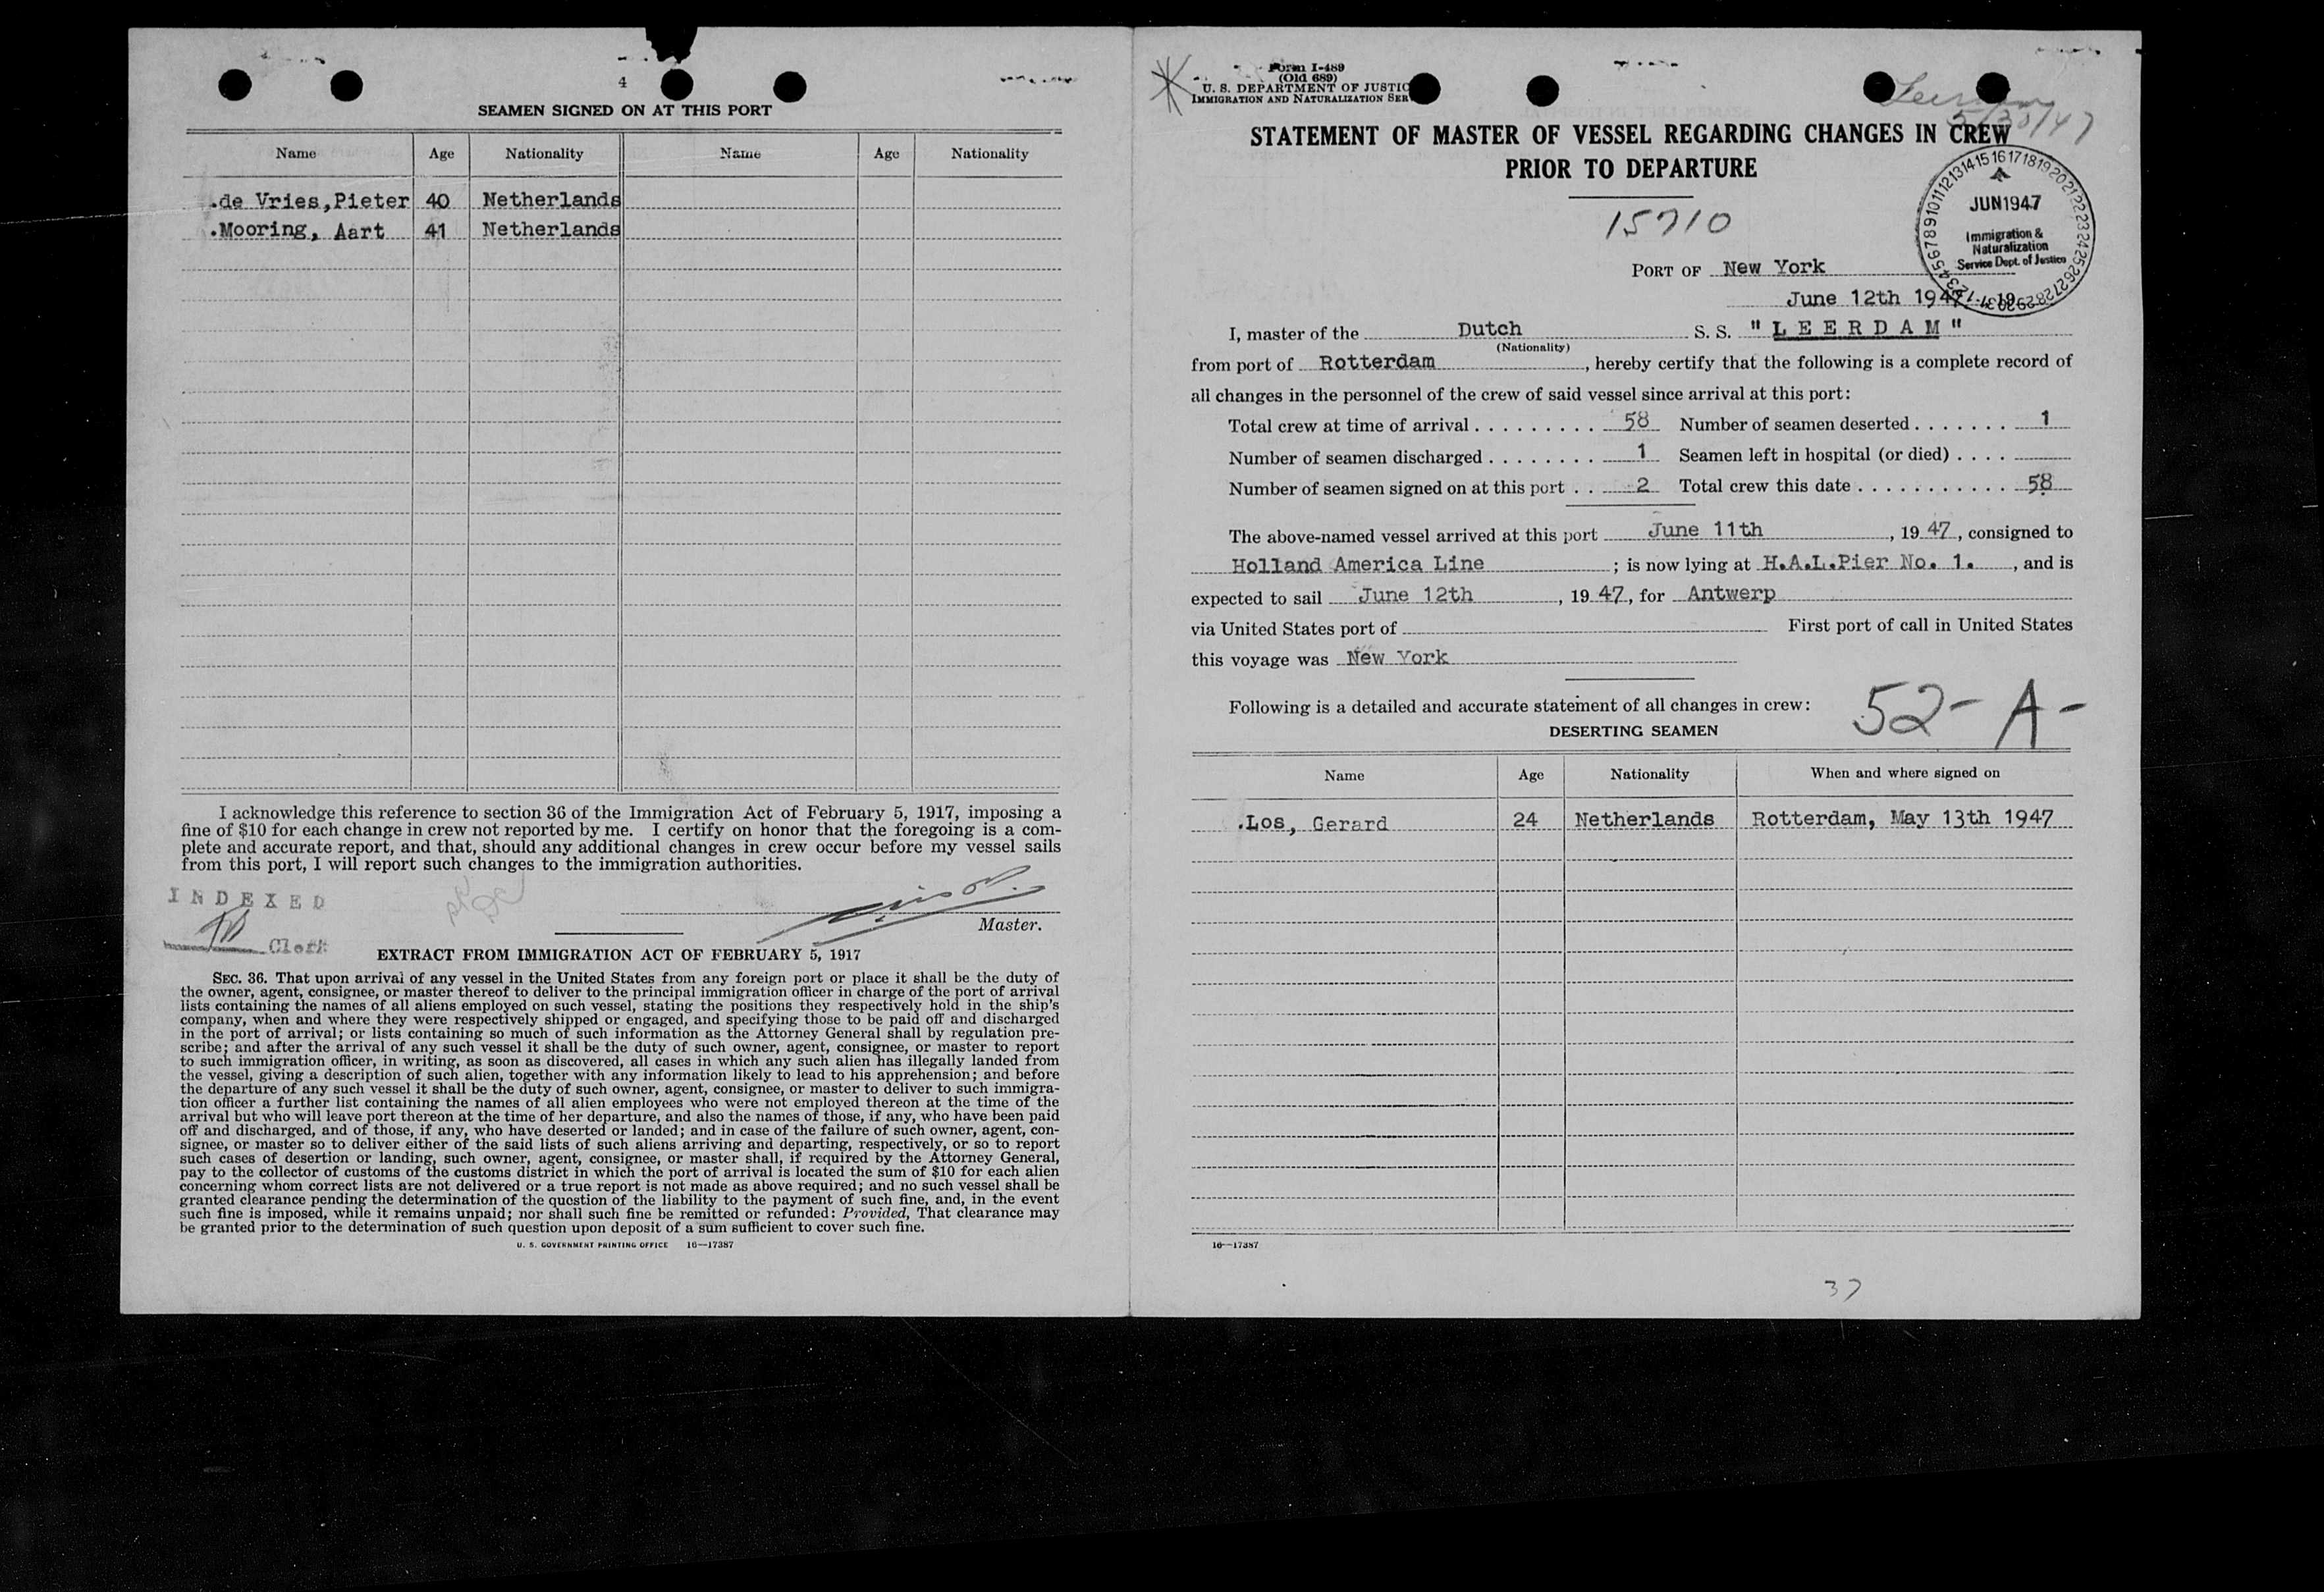 4
SEAMEN SIGNED ON AT THIS PORT
Name Age Nationality Name Age Nationality
.de Vries,Pieter 40 Netherlands
.Mooring, Aart 41 Netherlands
I acknowledge this reference to section 36 of the Immigration Act of February 5, 1917, imposing a
fine of $10 for each change in crew not reported by me. I certify on honor that the foregoing is a com-
plete and accurate report, and that, should any additional changes in crew occur before my vessel sails
from this port, I will report such changes to the immigration authorities.
INDEXED
Clerk
Master.
EXTRACT FROM IMMIGRATION ACT OF FEBRUARY 5, 1917
SEC. 36. That upon arrival of any vessel in the United States from any foreign port or place it shall be the duty of
the owner, agent, consignee, or master thereof to deliver to the principal immigration officer in charge of the port of arrival
lists containing the names of all aliens employed on such vessel, stating the positions they respectively hold in the ship's
company, when and where they were respectively shipped or engaged, and specifying those to be paid off and discharged
in the port of arrival; or lists containing so much of such information as the Attorney General shall by regulation pre-
scribe; and after the arrival of any such vessel it shall be the duty of such owner, agent, consignee, or master to report
to such immigration officer, in writing, as soon as discovered, all cases in which any such alien has illegally landed from
the vessel, giving a description of such alien, together with any information likely to lead to his apprehension; and before
the departure of any such vessel it shall be the duty of such owner, agent, consignee, or master to deliver to such immigra-
tion officer a further list containing the names of all alien employees who were not employed thereon at the time of the
arrival but who will leave port thereon at the time of her departure, and also the names of those, if any, who have been paid
off and discharged, and of those, if any, who have deserted or landed; and in case of the failure of such owner, agent, con-
signee, or master so to deliver either of the said lists of such aliens arriving and departing, respectively, or so to report
such cases of desertion or landing, such owner, agent, consignee, or master shall, if required by the Attorney General,
pay to the collector of customs of the customs district in which the port of arrival is located the sum of $10 for each alien
concerning whom correct lists are not delivered or a true report is not made as above required; and no such vessel shall be
granted clearance pending the determination of the question of the liability to the payment of such fine, and, in the event
such fine is imposed, while it remains unpaid; nor shall such fine be remitted or refunded: Provided, That clearance may
be granted prior to the determination of such question upon deposit of a sum sufficient to cover such fine.
U. S. GOVERNMENT PRINTING OFFICE 16—17387
Form I-489
(Old 689)
U. S. DEPARTMENT OF JUSTIC
IMMIGRATION AND NATURALIZATION SER
5/30/47
STATEMENT OF MASTER OF VESSEL REGARDING CHANGES IN CREW
PRIOR TO DEPARTURE
15710
JUN 1947
Immigration &
Naturalization
Service Dept. of Justice
PORT OF New York
June 12th 1947, 19
I, master of the Dutch S. S. "LEERDAM"
(Nationality)
from port of Rotterdam, hereby certify that the following is a complete record of
all changes in the personnel of the crew of said vessel since arrival at this port:
Total crew at time of arrival 58 Number of seamen deserted 1
Number of seamen discharged 1 Seamen left in hospital (or died)
Number of seamen signed on at this port 2 Total crew this date 58
The above-named vessel arrived at this port June 11th, 1947, consigned to
Holland America Line; is now lying at H.A.L.Pier No. 1., and is
expected to sail June 12th, 1947, for Antwerp
via United States port of First port of call in United States
this voyage was New York
Following is a detailed and accurate statement of all changes in crew:
52- A-
DESERTING SEAMEN
Name Age Nationality When and where signed on
.Los, Gerard 24 Netherlands Rotterdam, May 13th 1947
16—17387
37